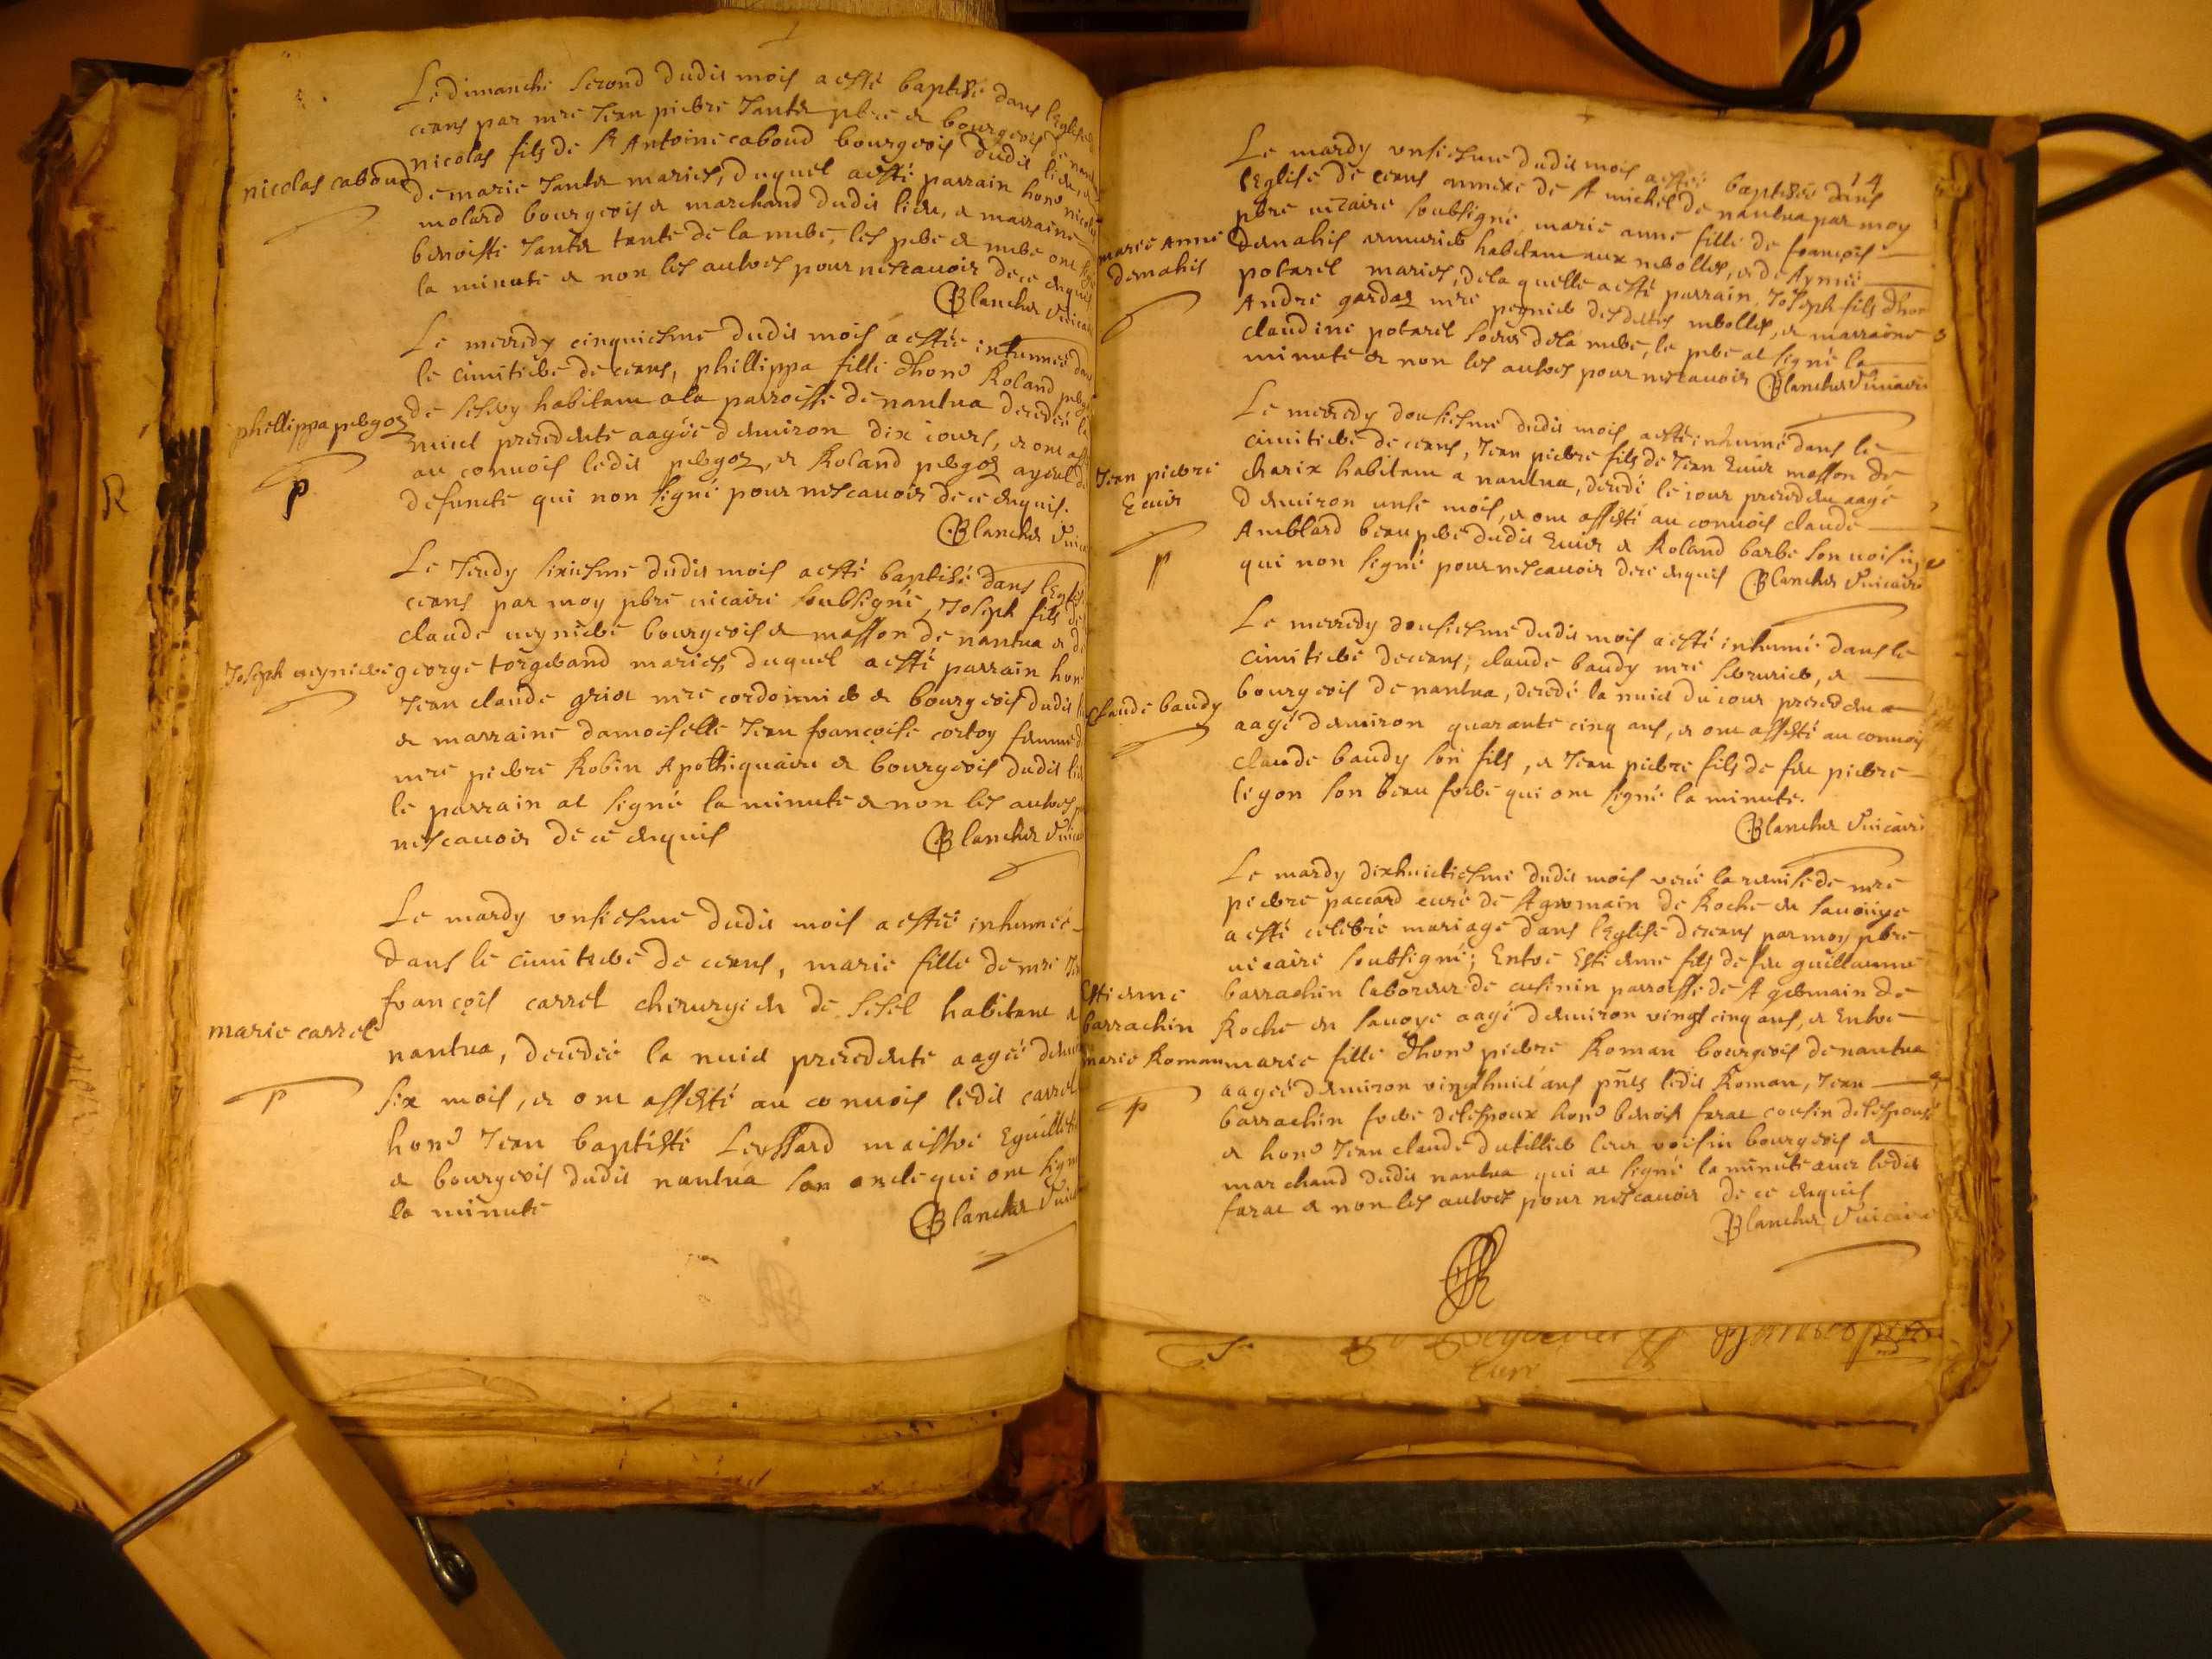 Le dimanche second dudit mois a esté baptisé dans l'Eglise de
ceans par mre Jean pierre Jantet pbre et bourgeois de nantua
nicolas fils de Sr Antoine caboud bourgeois dudit lieu, et
nicolas caboud
de marie Jantet mariés, duquel a esté parrain honᵉ nicolas
molard bourgeois et marchand dudit lieu, et marraine
benoiste Jantet tante de la mere, les pere et mere ont signé
la minute et non les autres pour ne scavoir de ce enquis
Blanchet Vicaire
Le mercredy cinquiesme dudit mois a estée inhumée dans
le cimitiere de ceans, phillippa fille d'honᵉ Roland pergoz
phillippa pergoz
de lelery habitant a la parroisse de nantua decedée la
nuict precedente aagée d'environ dix iours, et ont assisté
au convois ledit pergoz, et Roland pergoz ayeul de
defuncte qui n'ont signé pour ne scavoir de ce enquis.
p
Blanchet Vicaire
Le Jeudy sixiesme dudit mois a esté baptisé dans l'Eglise
ceans par moy pbre vicaire soubsigné, Joseph fils de
claude meyniere bourgeois et masson de nantua et de
Joseph meyniere
george torgerand mariés duquel a esté parrain honᵉ
Jean claude griot mre cordonnier et bourgeois dudit lieu
et marraine damoiselle Jean françoise cortoy femme de
mre pierre Robin Apothiquaire et bourgeois dudit lieu
le parrain at signé la minute et non les autres pour
ne scavoir de ce enquis
Blanchet Vicaire
Le mardy unsiesme dudit mois a estée inhumée
dans le cimitiere de ceans, marie fille de mre Jean
françois carrel chirurgien de seisel habitant a
marie carrel
nantua, decedée la nuict precedente aagée d'environ
six mois, et ont assisté au convois ledit carrel
p
honᵉ Jean baptiste Leyssard maistre Eguilletier
et bourgeois dudit nantua son oncle qui ont signé
la minute
Blanchet Vicaire
14
Le mardy unsiesme dudit mois a estée baptisée dans
l'Eglise de ceans annexe de St michel de nantua par moy
pbre vicaire soubsigné marie anne fille de françois
marie anne
demahis
demahis armurier habitant aux neyrolles, et de Aymée
potarel mariés, de la quelle a esté parrain Joseph fils d'honᵉ
Andre gardaz mre peynier desdites neyrolles, et marraine
claudine potarel soeur de la mere, le pere at signé la
minute et non les autres pour ne scavoir Blanchet Vicaire
Le mercredy dousiesme dudit mois a esté inhumé dans le
cimitiere de ceans, Jean pierre fils de Jean Euir masson de
Jean pierre
Euir
charix habitant a nantua, decedé le iour precedent aagé
d'environ unse mois, et ont assisté au convois claude
Amblard beau pere dudit Euir et Roland barbe son voisin
p
qui n'ont signé pour ne scavoir de ce enquis Blanchet Vicaire
Le mercredy dousiesme dudit mois a esté inhumé dans le
cimitiere de ceans, claude baudy mre serrurier, et
bourgeois de nantua, decedé la nuict du iour precedent
claude baudy
aagé d'environ quarante cinq ans, et ont assisté au convois
claude baudy son fils, et Jean pierre fils de feu pierre
leyon son beau frere qui ont signé la minute.
Blanchet Vicaire
Le mardy dixhuictiesme dudit mois veüe la remise de mre
pierre paccard curé de St germain de Roche en savoye
a esté celebré mariage dans l'Eglise de ceans par moy pbre
vicaire soubsigné; Entre Estienne fils de feu guillaume
Estienne
barrachin
barrachin laboureur de cusinin parroisse de St germain de
Roche en savoye aagé d'environ vingt cinq ans, et Entre
marie Roman
marie fille d'honᵉ pierre Roman bourgeois de nantua
aagée d'environ vingthuict ans pñts ledit Roman, Jean
p
barrachin frere de l'espoux honᵉ benoist farat cousin de l'espouse
et honᵉ Jean claude dutillier leur voisin bourgeois et
marchand dudit nantua qui at signé la minute avec ledit
farat et non les autres pour ne scavoir de ce enquis
Blanchet Vicaire